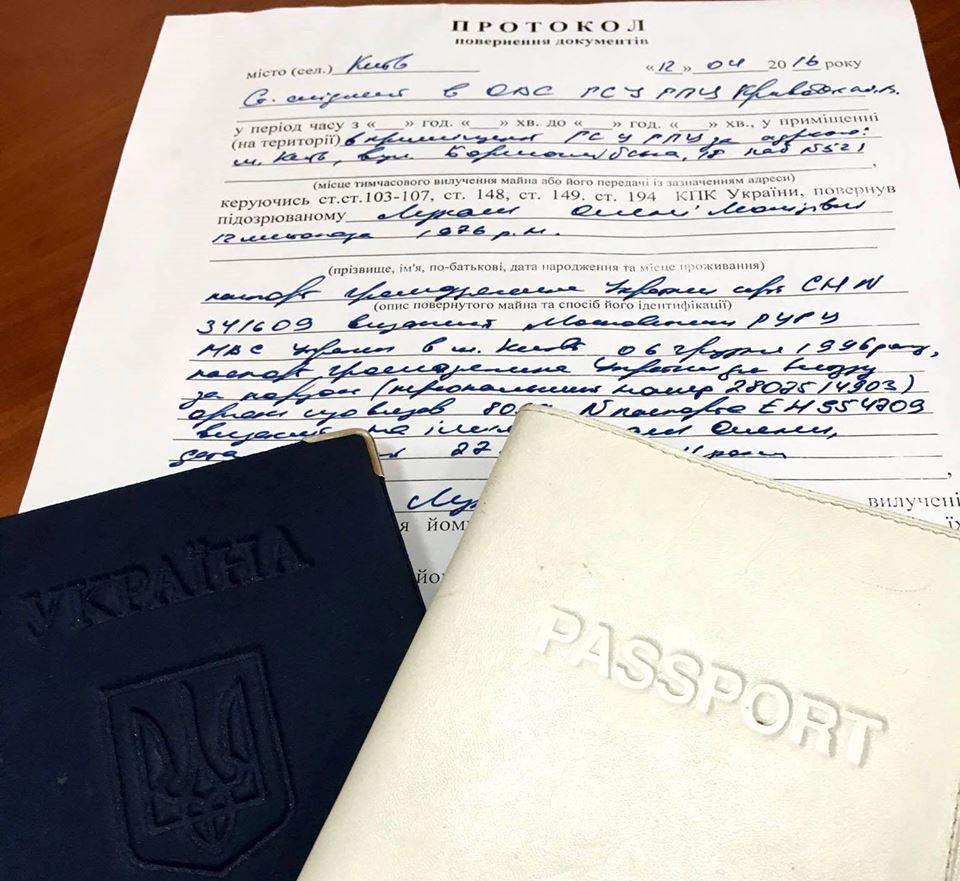 ПРОТОКОЛ
повернення документів
місто (сел.) Київ «12» 04 2016 року
Ст. слідчий в ОВС ГСУ ГПУ
у період часу з «___» год. «___» хв. до «___» год. «___» хв., у приміщенні
(на території) в приміщенні ГСУ ГПУ за адресою:
м. Київ, вул. Борисоглібська, 18 каб №521
(місце тимчасового вилучення майна або його передачі із зазначенням адреси)
керуючись ст.ст.103-107, ст. 148, ст. 149. ст. 194 КПК України, повернув
підозрюваному Лукаш Олені Леонідівні
12 листопада 1976 р.н.
(прізвище, ім'я, по-батькові, дата народження та місце проживання)
паспорт громадянина України серії СН №
(опис повернутого майна та спосіб його ідентифікації)
341609 виданий Московським РУГУ
МВС України в м. Київ 06 грудня 1996 року,
паспорт громадянина України для виїзду
за кордон (персональний номер
орган що видав 80 N паспорта ЕН554709
виданий на Олени,
дата 22
вилучені
йому
УКРАЇНА
PASSPORT